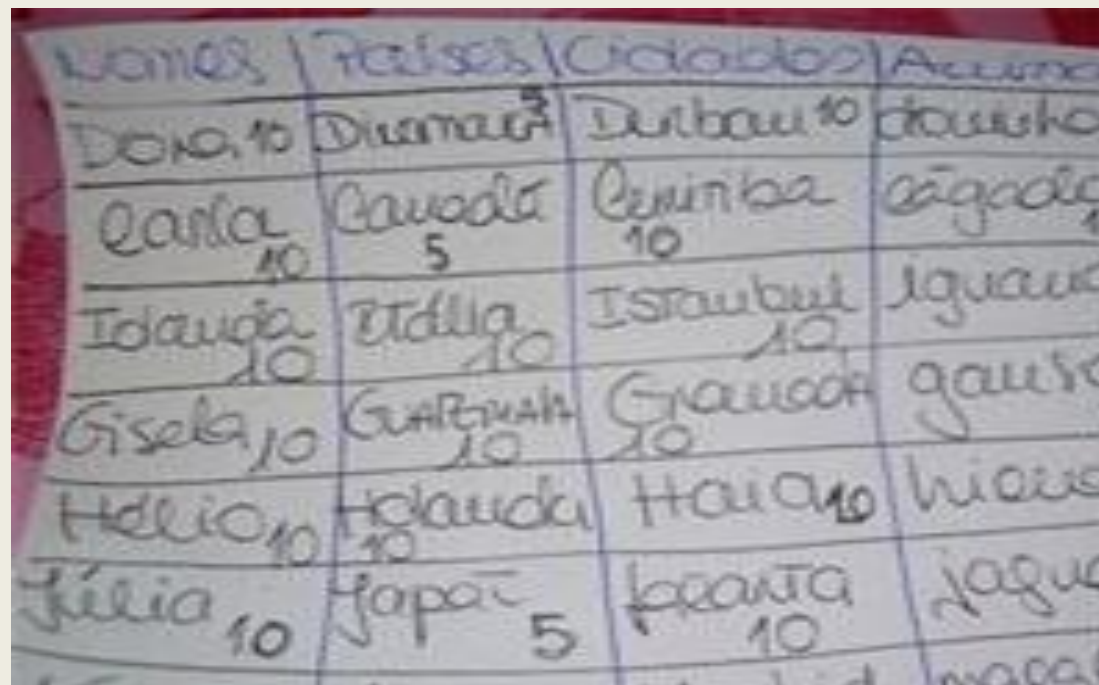 Nomes Países Cidades
Dora 10 Dinamarca 5 Durban 10
Carla 10 Canadá 5 Curitiba 10 cágado
Iolanda 10 Itália 10 Istambul 10 iguana
Gisela 10 GUATEMALA 10 Granada 10
Hélio 10 Holanda 10 Haia 10
Júlia 10 Japão 5 Jacarta 10